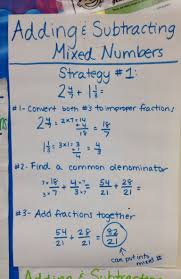 Adding & Subtracting
Mixed Numbers
Strategy #1:
2 4/7 + 1 1/3 =
#1- Convert both #'s to improper fractions
2 4/7 = 2x7=14 +4 18 = 18/7
1 1/3 = 3x1=3 +1 4 = 4/3
#2- Find a common denominator
18/7 + 4/3 = 54/21 + 28/21
#3- Add fractions together
54/21 + 28/21 = 82/21
can put into
mixed #
Adding & Subtracting